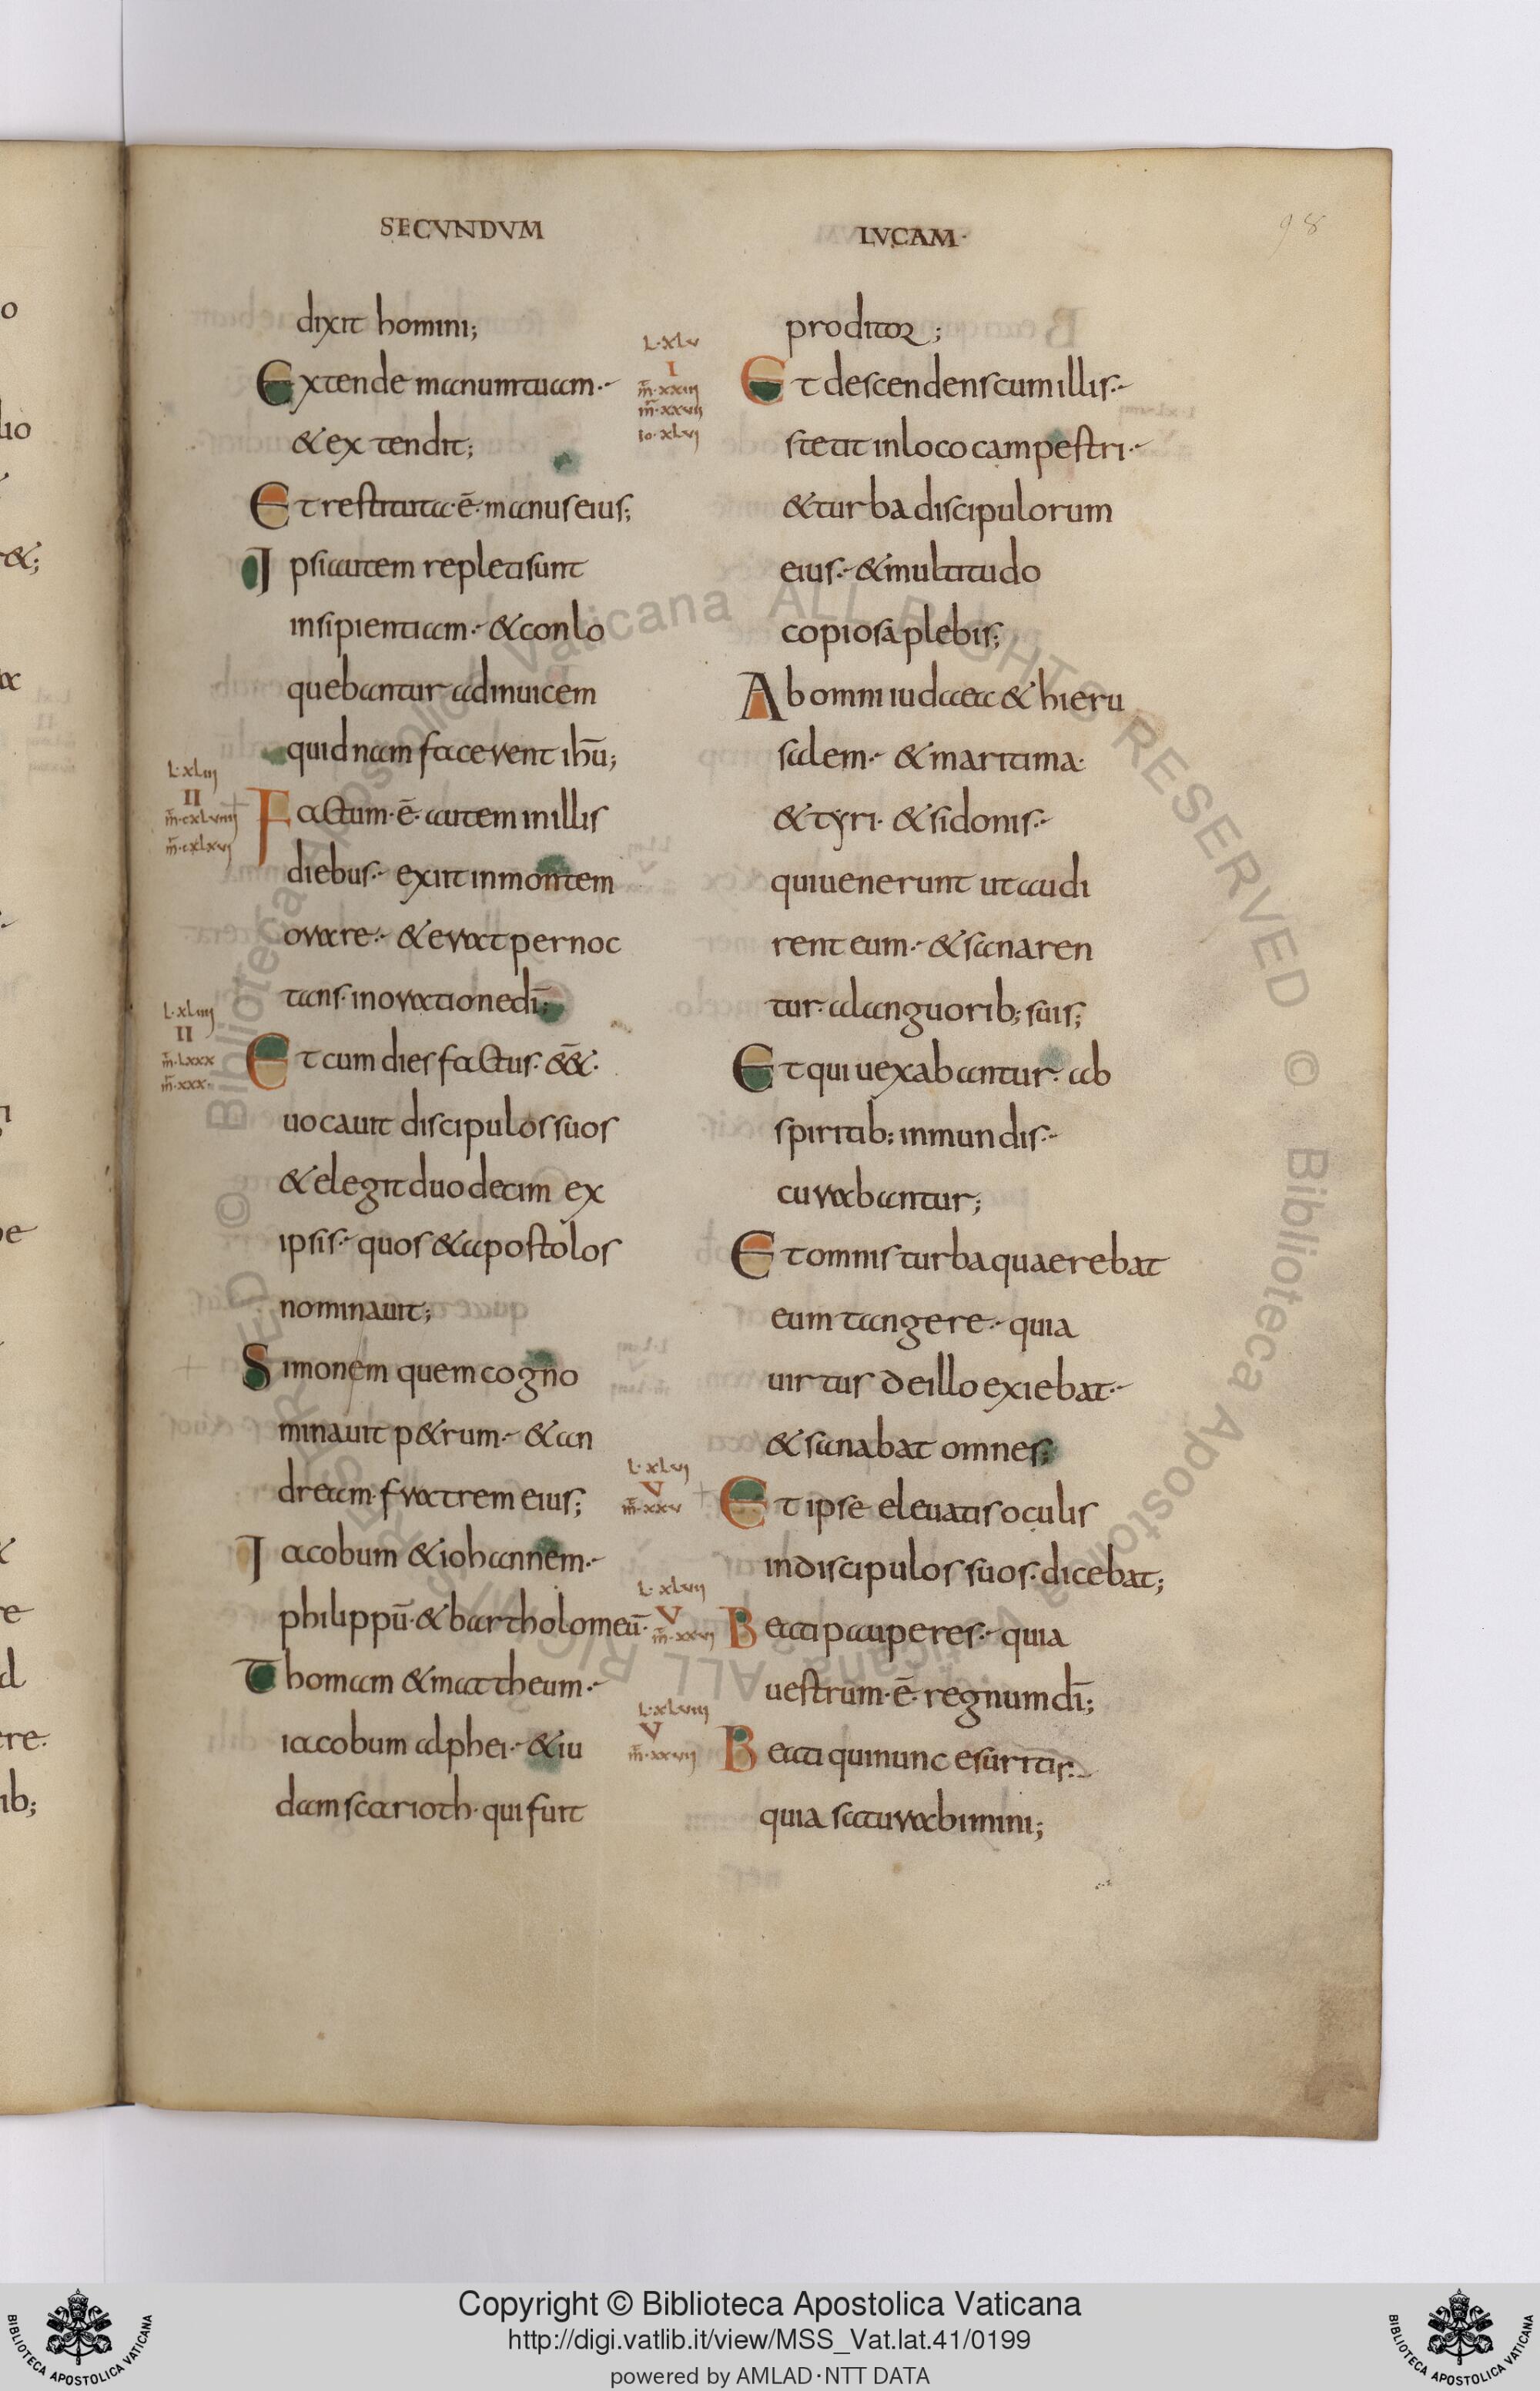 SECUNDUM
LUCAM·
98
dixit homini;
Extende manum tuam.
& extendit;
Et restituta·ē·manus eius;
Ipsi autem repleti sunt
insipientiam. & conlo
quebantur adinuicem
quidnam facerent ihū;
L·xliii
II
m̄·cxlviiii
m̄·cxlxvi
Factum·ē·autem in illis
diebus. exiit in montem
orare. & erat pernoc
tans·in oratione dī;
L·xliiii
II
m̄·lxxx
m̄·xxx·
Et cum dies factus·&&·
uocauit discipulos suos
& elegit duodecim ex
ipsis. quos & apostolos
nominauit;
Simonem quem cogno
minauit p&rum. & an
dream·fratrem eius;
Iacobum & iohannem.
philippū·& bartholomeū·
Thomam & mattheum.
iacobum alphei. & iu
dam scarioth·qui fuit
proditor;
L·xlv
I
m̄·xxiii
m̄·xxvii
io·xlvi
Et descendens cum illis.
stetit in loco campestri.
& turba discipulorum
eius. & multitudo
copiosa plebis;
Ab omni iudaea & hieru
salem. & maritima·
& tyri· & sidonis.
qui uenerunt ut audi
rent eum. & sanaren
tur·alanguorib; suis;
Et qui uexabantur·ab
spiritib; inmundis.
curabantur;
Et omnis turba quaerebat
eum tangere. quia
uirtus de illo exiebat.
& sanabat omnes;
L·xlvi
V
m̄·xxv
Et ipse eleuatis oculis
in discipulos suos·dicebat;
L·xlvii
V
m̄·xxvi
Beati pauperes. quia
uestrum·ē·regnum dī;
L·xlviii
V
m̄·xxvii
Beati qui nunc esuritis.
quia saturabimini;
Copyright © Biblioteca Apostolica Vaticana
http://digi.vatlib.it/view/MSS_Vat.lat.41/0199
powered by AMLAD·NTT DATA
BIBLIOTECA APOSTOLICA VATICANA
BIBLIOTECA APOSTOLICA VATICANA